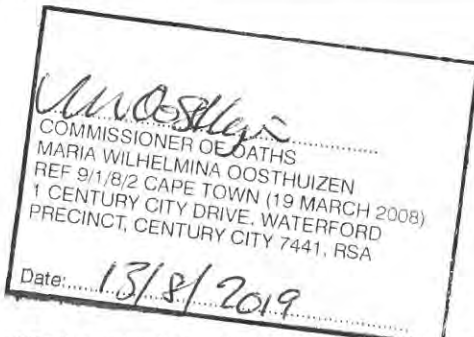 COMMISSIONER OF OATHS
MARIA WILHELMINA OOSTHUIZEN
REF 9/1/8/2 CAPE TOWN (19 MARCH 2008)
1 CENTURY CITY DRIVE, WATERFORD
PRECINCT, CENTURY CITY 7441, RSA
Date:.....13/8/2019